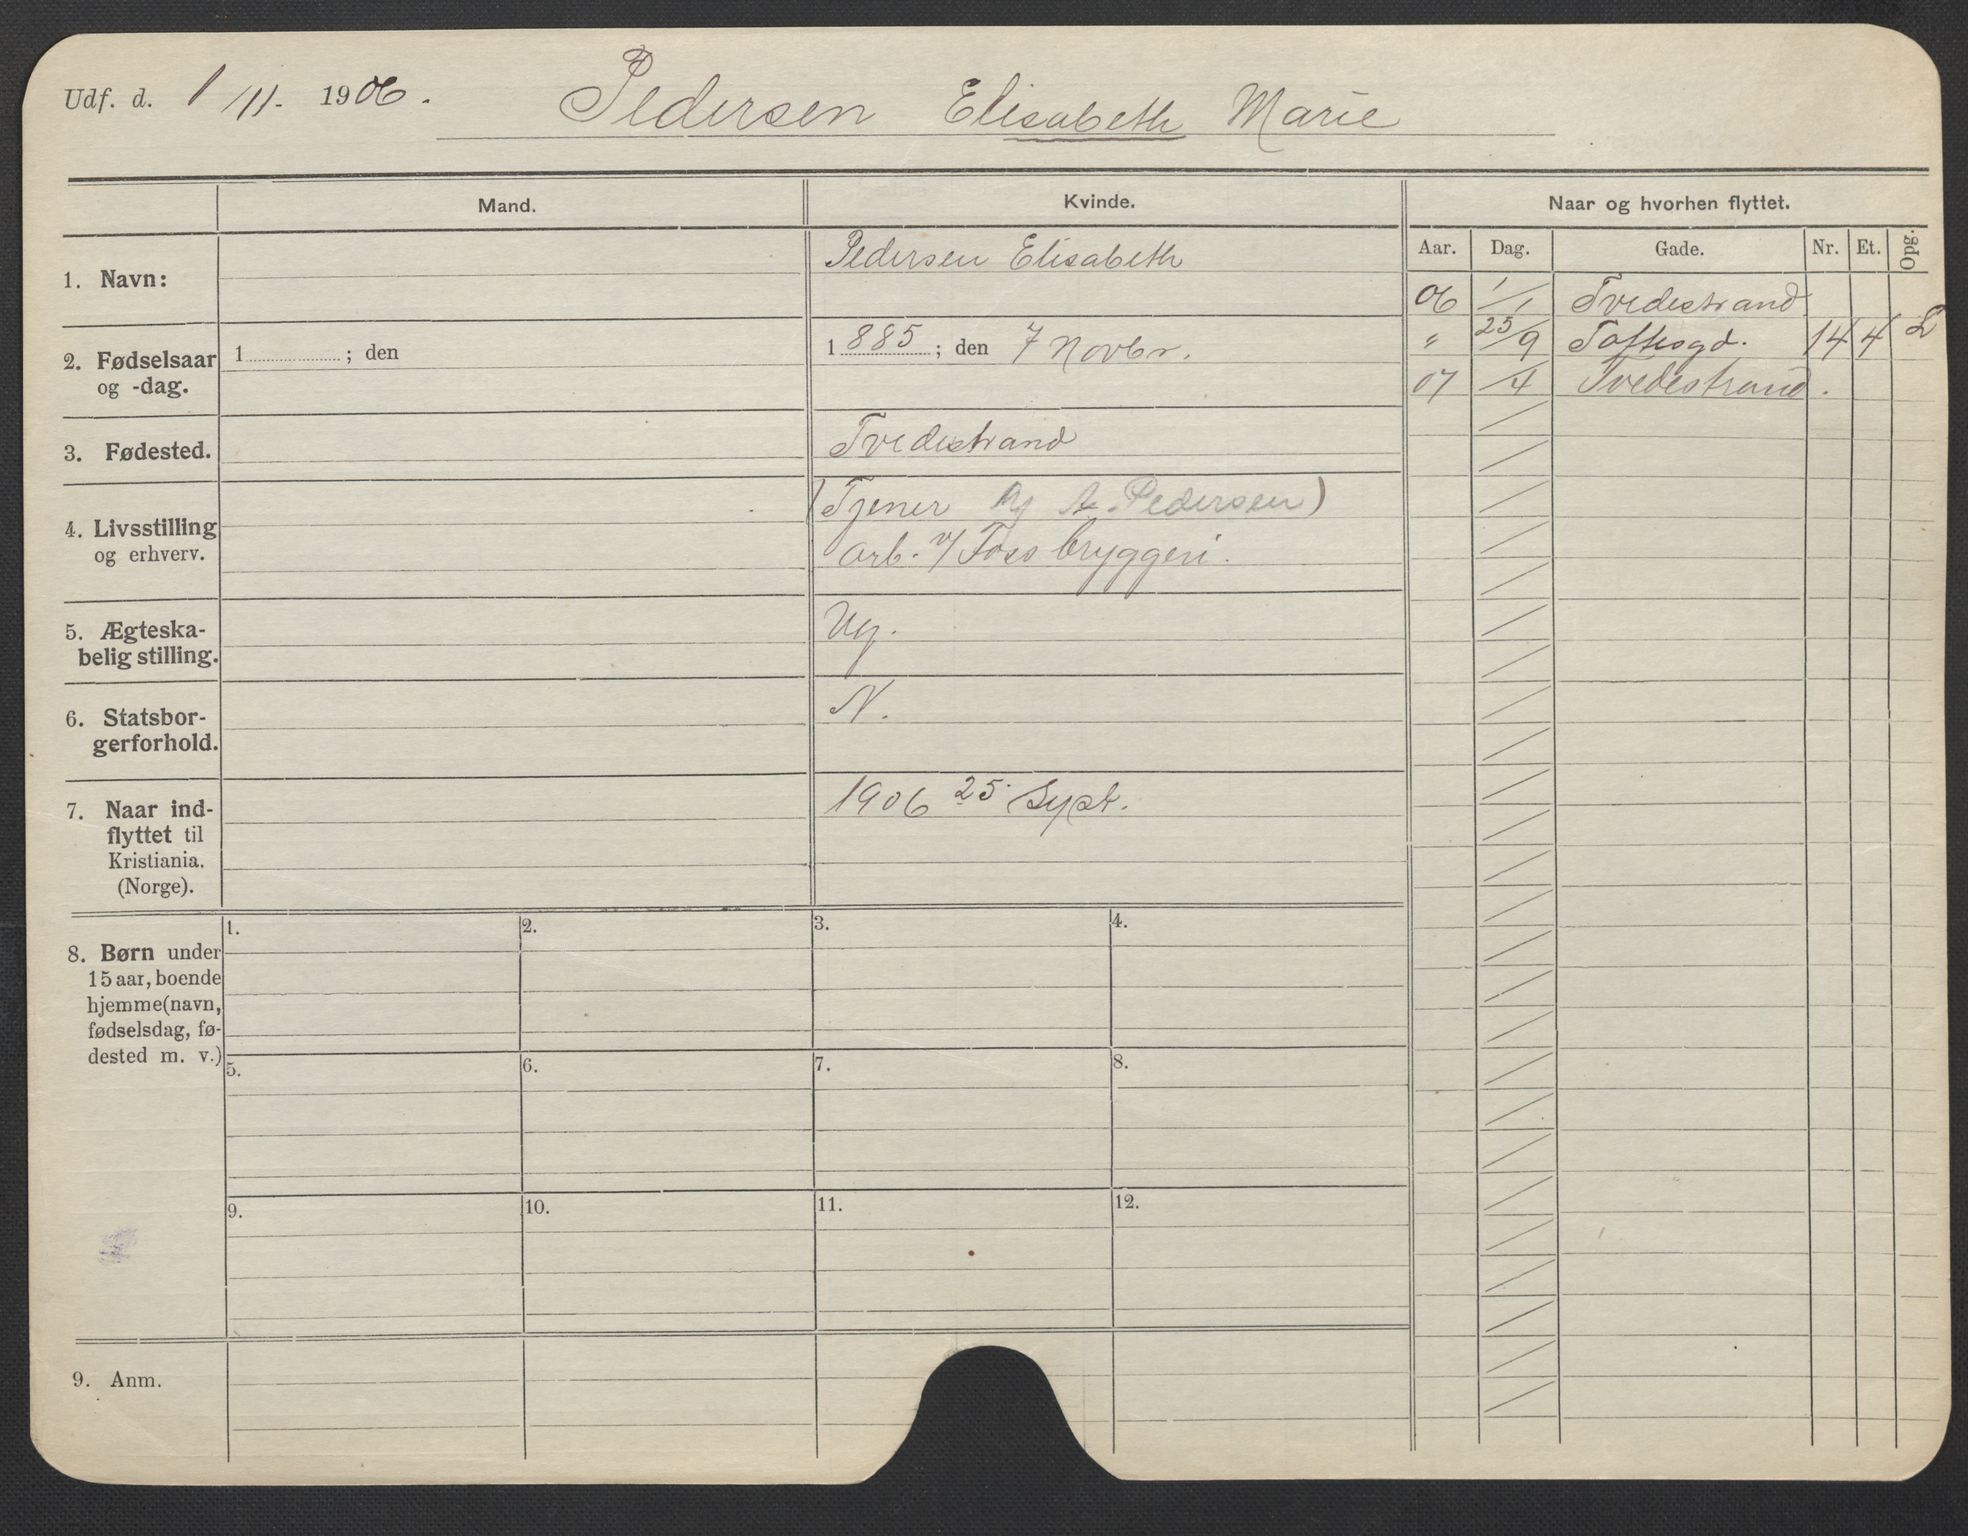 Udf. d. 1/11. 1906. Pedersen Elisabeth Marie
Mand. Kvinde. Naar og hvorhen flyttet.
Aar. Dag. Gade. Nr. Et. Opg.
1. Navn: Pedersen Elisabeth
06 1/1 Tvedestrand
2. Fødselsaar 1 ; den 1885; den 7 Novbr.
og -dag.
" 25/9 Toftesgd. 14 4
07 /4 Tvedestrand.
3. Fødested. Tvedestrand
4. Livsstilling (Tjener A. Pedersen)
og erhverv. arb. v/ Foss bryggeri.
5. Ægteska- Ug.
belig stilling.
6. Statsbor- N.
gerforhold.
7. Naar ind- 1906 25. Sept.
flyttet til
Kristiania.
(Norge).
8. Børn under
15 aar, boende
hjemme (navn,
fødselsdag, fø-
dested m. v.)
1. 2. 3. 4.
5. 6. 7. 8.
9. 10. 11. 12.
9. Anm.